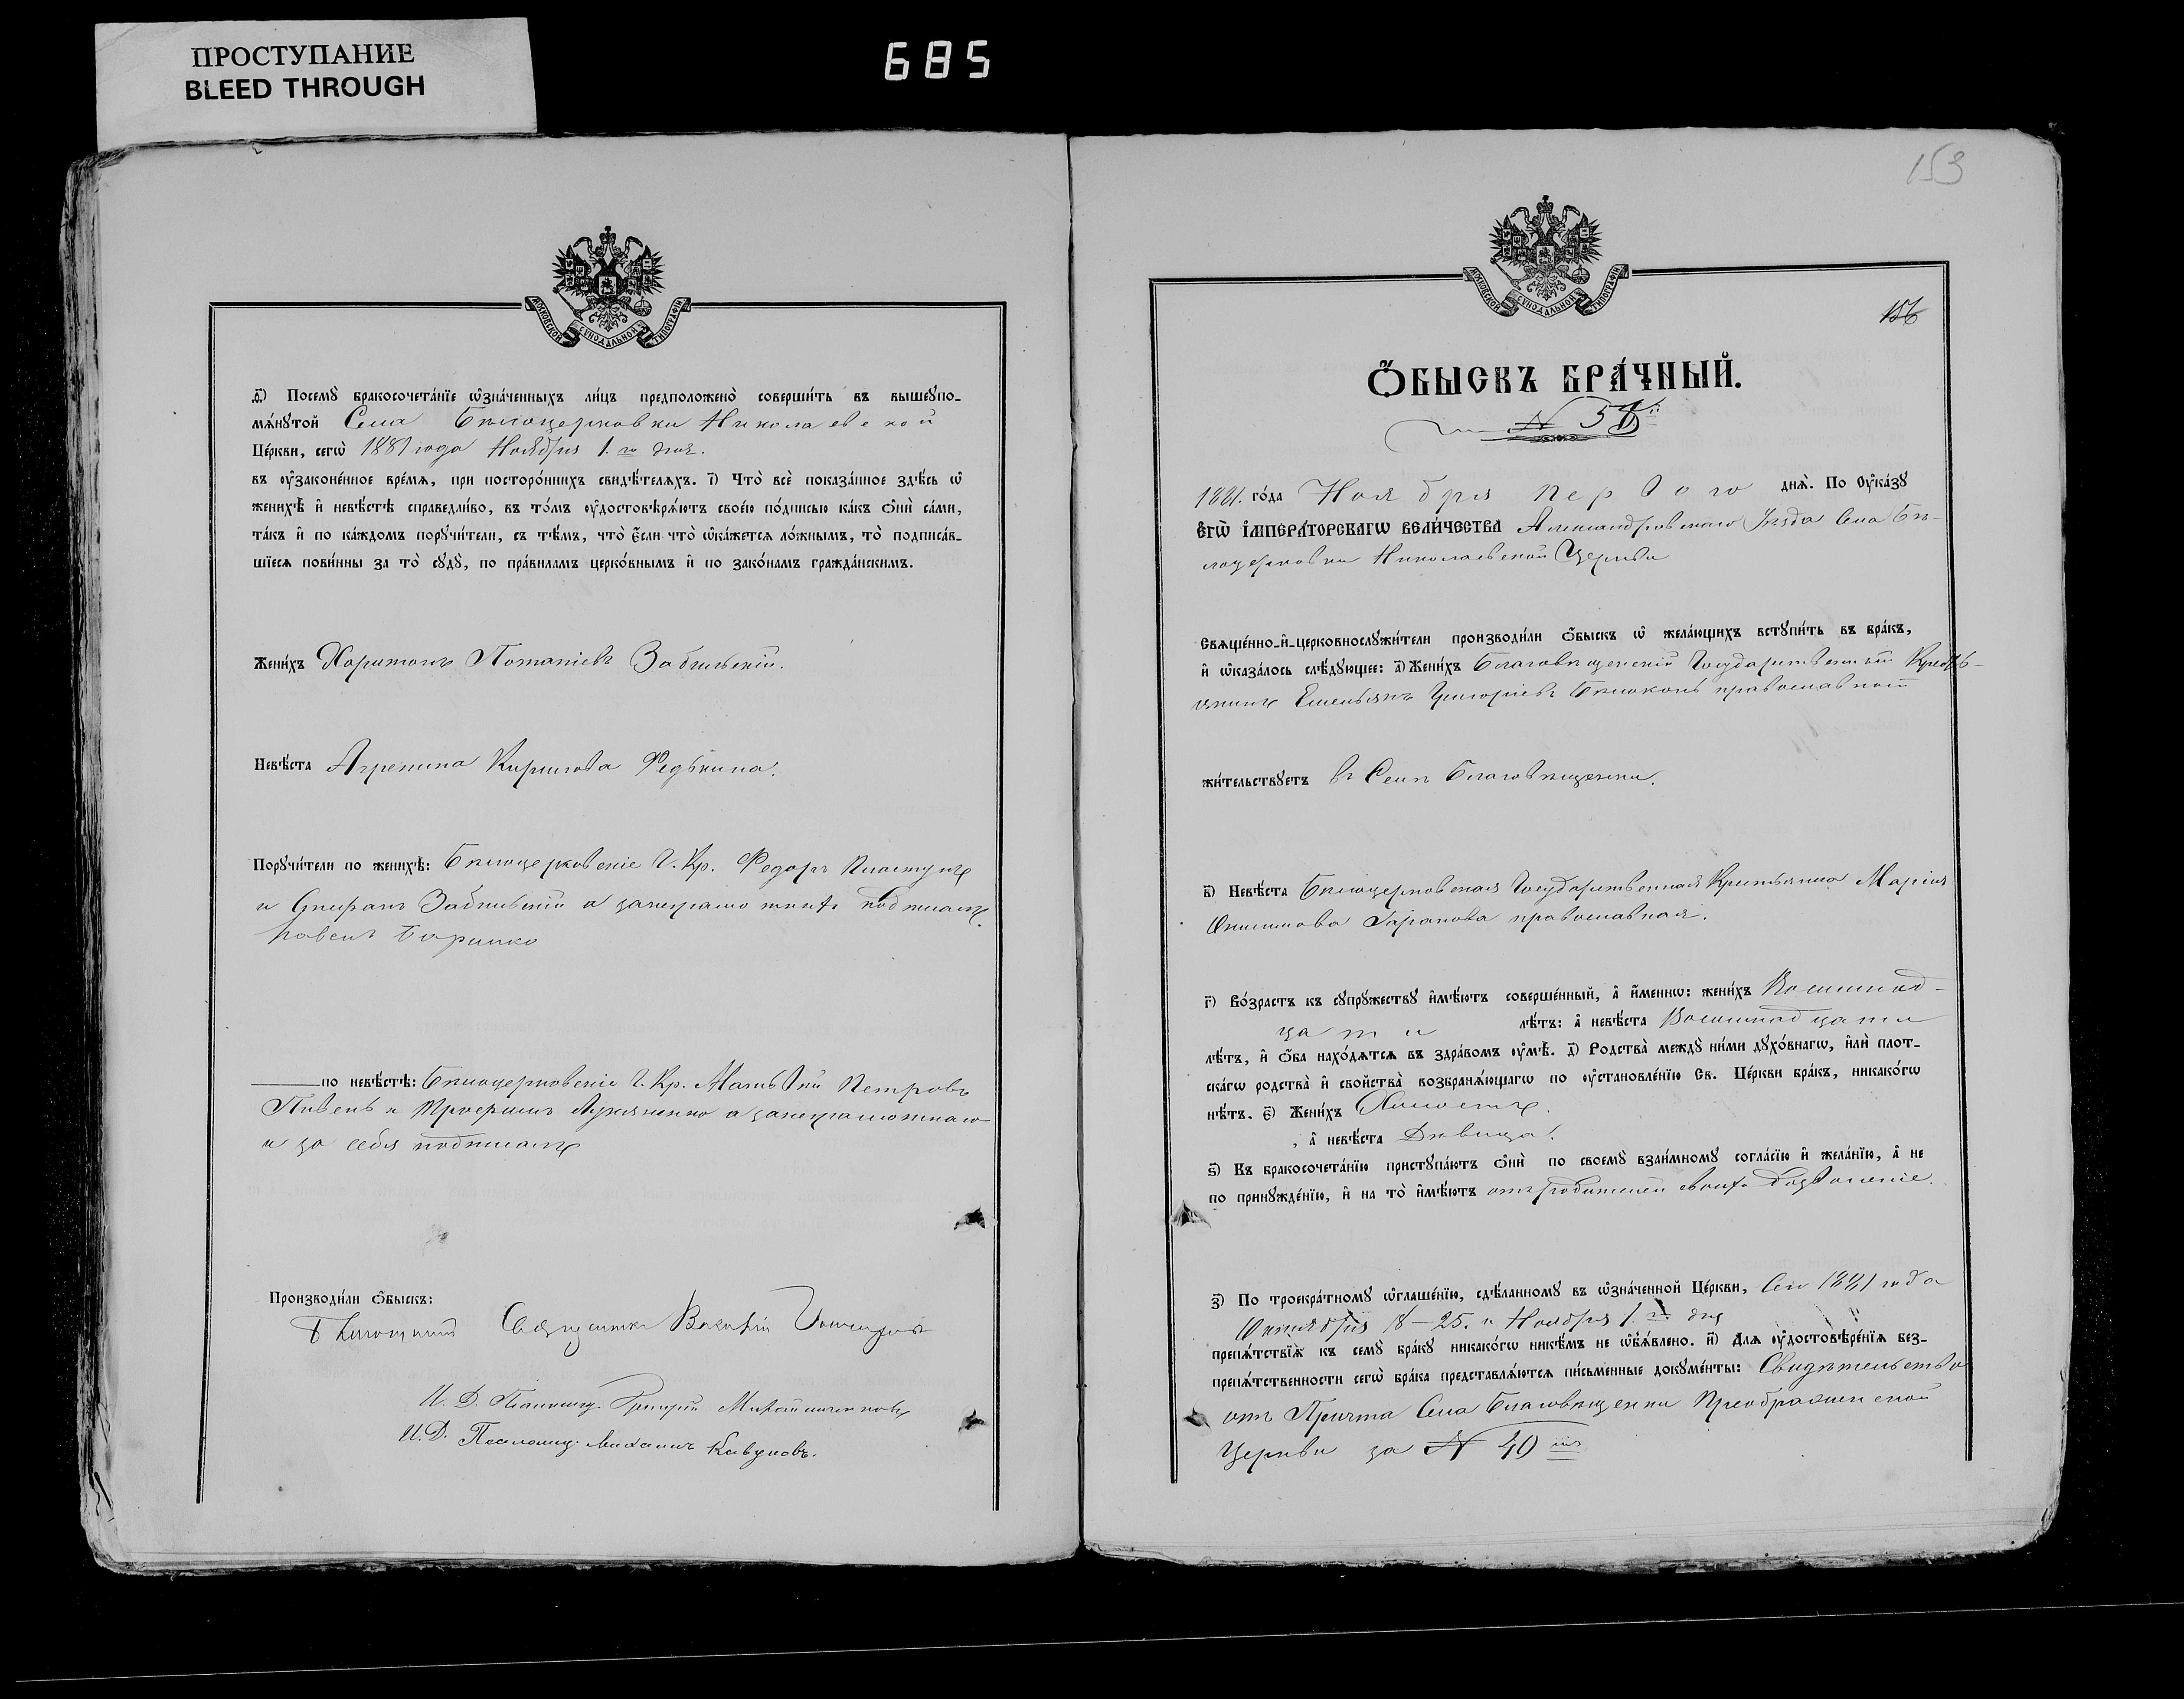 ПРОСТУПАНИЕ
BLEED THROUGH
685
МОСКОВСКОЙ СѴНОДАЛЬНОЙ ТИПОГРАФІИ
д҃і) Посемꙋ̀ бракосочета́нїе ѡ҆зна́ченныхъ ли́цъ предположено̀ соверши́ть въ вышеꙋпо-
мѧ́нꙋтой Села Бѣлоцерковки Николаевской
Це́ркви, сегѡ̀ 1881 года Ноября 1.го дня.
въ ᲂу҆законе́нное вре́мѧ, при посторо́ннихъ свидѣ́телѧхъ. і҃) Что̀ всѐ показа́нное здѣ́сь ѡ҆
женихѣ̀ и҆ невѣ́стѣ справедли́во, въ то́мъ ᲂу҆достовѣрѧ́ютъ свое́ю по́дписью ка́къ ѻ҆нѝ са́ми,
та́къ и҆ по ка́ждомъ порꙋчи́тели, съ тѣ́мъ, что̀ є҆́сли что̀ ѡ҆ка́жетсѧ ло́жнымъ, то̀ подписа́в-
шїесѧ пови́нны за то̀ сꙋдꙋ̀, по пра́виламъ церко́внымъ и҆ по зако́намъ гражда́нскимъ.
Жени́хъ Харитонъ Потапіевъ Забѣльскій.
Невѣ́ста Агрепина Кирилова Редькина.
Порꙋчи́тели по женихѣ̀: Бѣлоцерковскіе Г. Кр. Федоръ Пластунъ
и Стефанъ Забѣльскій а занеграмотныхъ подписалъ
Павелъ
по невѣ́стѣ: Бѣлоцерковскіе Г. Кр. Матвѣй Петровъ
Пивень и Трофимъ Лукяненко а занеграмотнаго
и за себя подписалъ
Производи́ли ѻ҆́быскъ:
Священникъ Василій
И. Д. Псаломщ. Григорій
И. Д. Псаломщ. Михаилъ Кавуновъ.
153
МОСКОВСКОЙ СѴНОДАЛЬНОЙ ТИПОГРАФІИ
156
Ѻ҆́БЫСКЪ БРА́ЧНЫЙ.
N 58й
1881. го́да Ноября первого днѧ̀. По Оу҆ка́зꙋ
Є҆ГѠ̀ І҆МПЕРА́ТОРСКАГѠ ВЕЛИ́ЧЕСТВА Александровскаго Уѣзда Села Бѣ-
лоцерковки Николаевской Церкви
Свѧще́нно-и҆-церковнослꙋжи́тели производи́ли ѻ҆́быскъ ѡ҆ жела́ющихъ встꙋпи́ть въ бра́къ,
и҆ ѡ҆каза́лось слѣ́дꙋющее: а҃) Жени́хъ Благовѣщенскій Государственный Кресть-
янинъ Емельянъ Григоріевъ Бѣлоконь православной
жи́тельствꙋетъ въ Селѣ Благовѣщенки.
в҃) Невѣ́ста Бѣлоцерковская Государственная Крестьянка Марія
Онисимова Таранова православная.
г҃) Во́зрастъ къ сꙋпрꙋ́жествꙋ и҆мѣ́ютъ соверше́нный, а҆ и҆́меннѡ: жени́хъ Восемнад-
цати лѣ́тъ: а҆ невѣ́ста Восемнадцати
лѣ́тъ, и҆ ѻ҆́ба нахо́дѧтсѧ въ здра́вомъ ᲂу҆мѣ̀. д҃) Родства̀ междꙋ̀ ни́ми дꙋхо́внагѡ, и҆лѝ плот-
ска́гѡ родства̀ и҆ свойства̀ возбранѧ́ющагѡ по ᲂу҆становле́нїю Св. Це́ркви бра́къ, никако́гѡ
нѣ́тъ. є҃) Жени́хъ Холостъ.
, а҆ невѣ́ста Дѣвица.
ѕ҃) Къ бракосочета́нїю пристꙋпа́ютъ ѻ҆нѝ по своемꙋ̀ взаи́мномꙋ согла́сїю и҆ жела́нїю, а҆ не
по принꙋжде́нїю, и҆ на то̀ и҆мѣ́ютъ отъ родителей своихъ дозволеніе.
з҃) По троекра́тномꙋ ѡ҆глаше́нїю, сдѣ́ланномꙋ въ ѡ҆зна́ченной Це́ркви, Сего 1881 года
Октября 18-25. и Ноября 1.го дня
препѧ́тствїѧ къ семꙋ̀ бра́кꙋ никако́гѡ никѣ́мъ не ѡ҆б̾ѧ́влено. и҃) Длѧ ᲂу҆достовѣре́нїѧ без-
препѧ́тственности сегѡ̀ бра́ка представлѧ́ютсѧ пи́сьменные докꙋме́нты: Свидѣтельство
отъ Причта Села Благовѣщенки Преображенской
Церкви за N 40